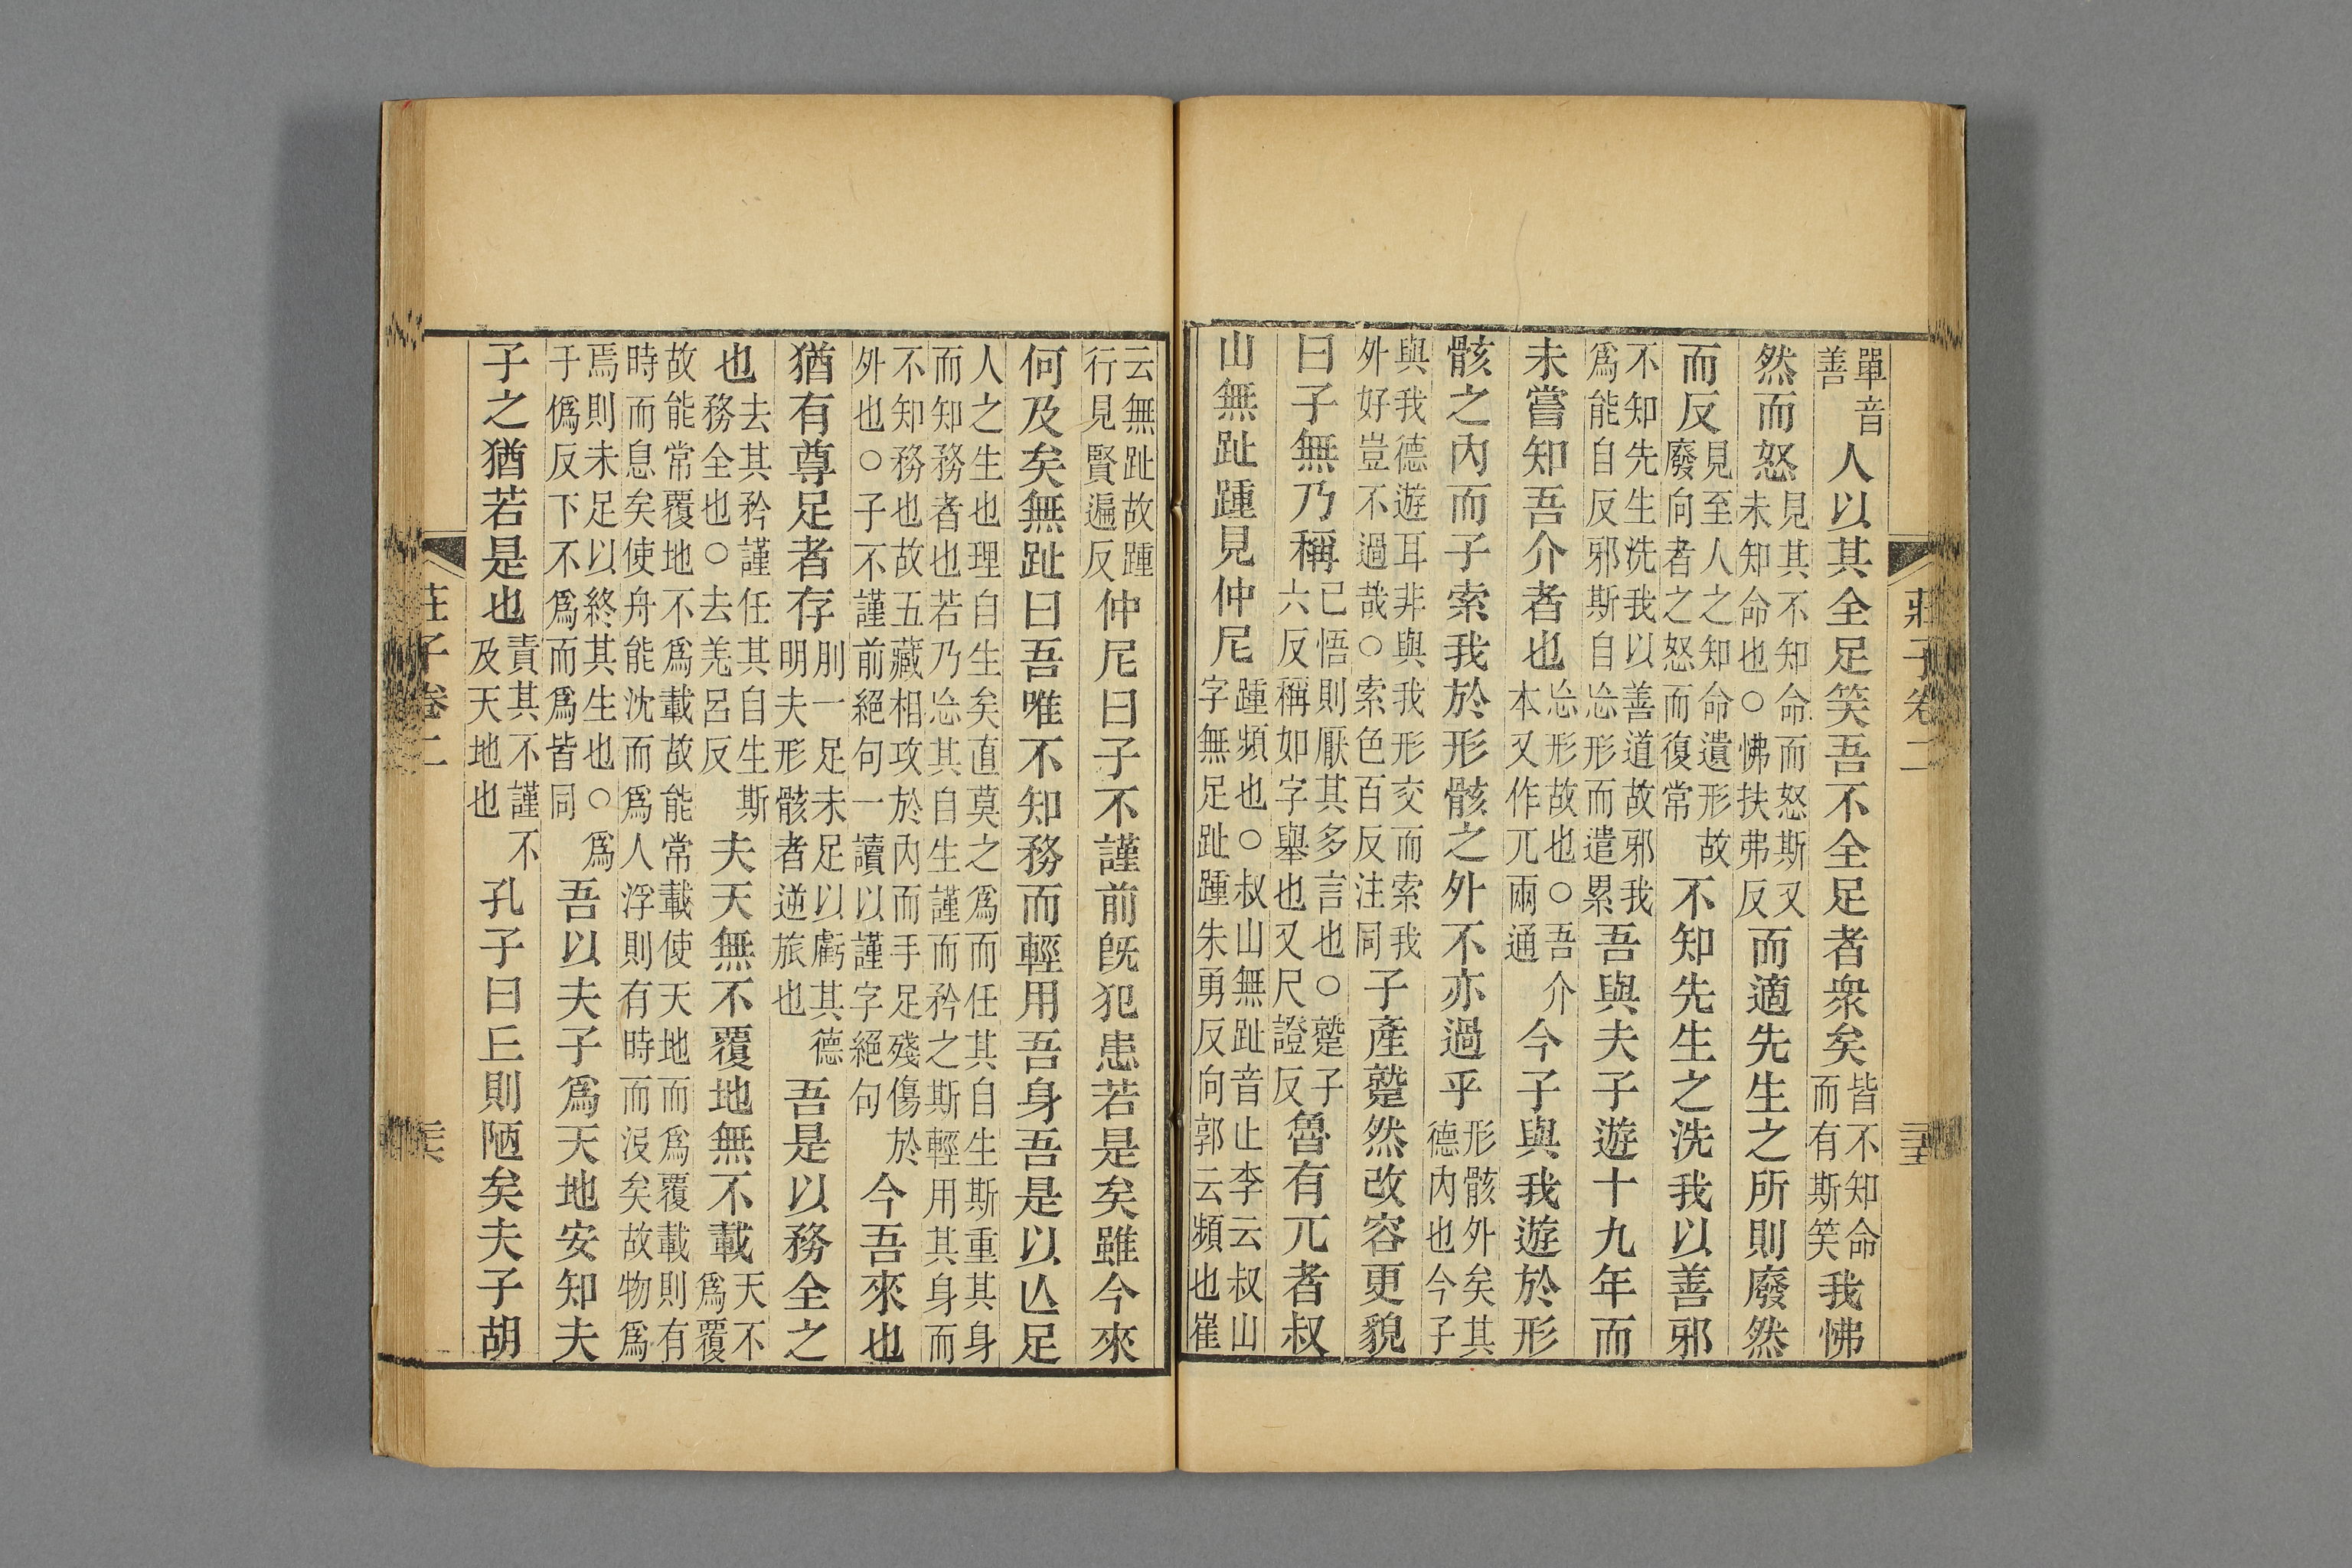 莊子卷二
單音善人以其全足笑吾不全足者衆矣皆不知命而有斯笑我怫
然而怒見其不知命而怒斯又未知命也○怫扶弗反而適先生之所則廢然
而反見至人之知命遺形故廢向者之怒而復常不知先生之洗我以善邪
不知先生洗我以善道故邪我爲能自反邪斯自忩形而遣累吾與夫子遊十九年而
未嘗知吾介者也忩形故也○吾介本又作兀兩通今子與我遊於形
骸之內而子索我於形骸之外不亦過乎形骸外矣其德內也今子
與我德遊耳非與我形交而索我外好豈不過哉○索色百反注同子產蹵然改容更貌
曰子無乃稱已悟則厭其多言也○蹵子六反稱如字舉也又尺證反魯有兀者叔
山無趾踵見仲尼踵頻也○叔山無趾音止李云叔山字無足趾踵朱勇反向郭云頻也崔
云無趾故踵行見賢遍反仲尼曰子不謹前旣犯患若是矣雖今來
何及矣無趾曰吾唯不知務而輕用吾身吾是以亾足
人之生也理自生矣直莫之爲而任其自生斯重其身而知務者也若乃忩其自生謹而矜之斯輕用其身而
不知務也故五藏相攻於內而手足殘傷於外也○子不謹前絕句一讀以謹字絕句今吾來也
猶有尊足者存刖一足未足以虧其德明夫形骸者逆旅也吾是以務全之
也去其矜謹任其自生斯務全也○去羌呂反夫天無不覆地無不載天不爲覆
故能常覆地不爲載故能常載使天地而爲覆載則有時而息矣使舟能沈而爲人浮則有時而沒矣故物爲
焉則未足以終其生也○爲于僞反下不爲而爲皆同吾以夫子爲天地安知夫
子之猶若是也責其不謹不及天地也孔子曰丘則陋矣夫子胡
莊子卷二